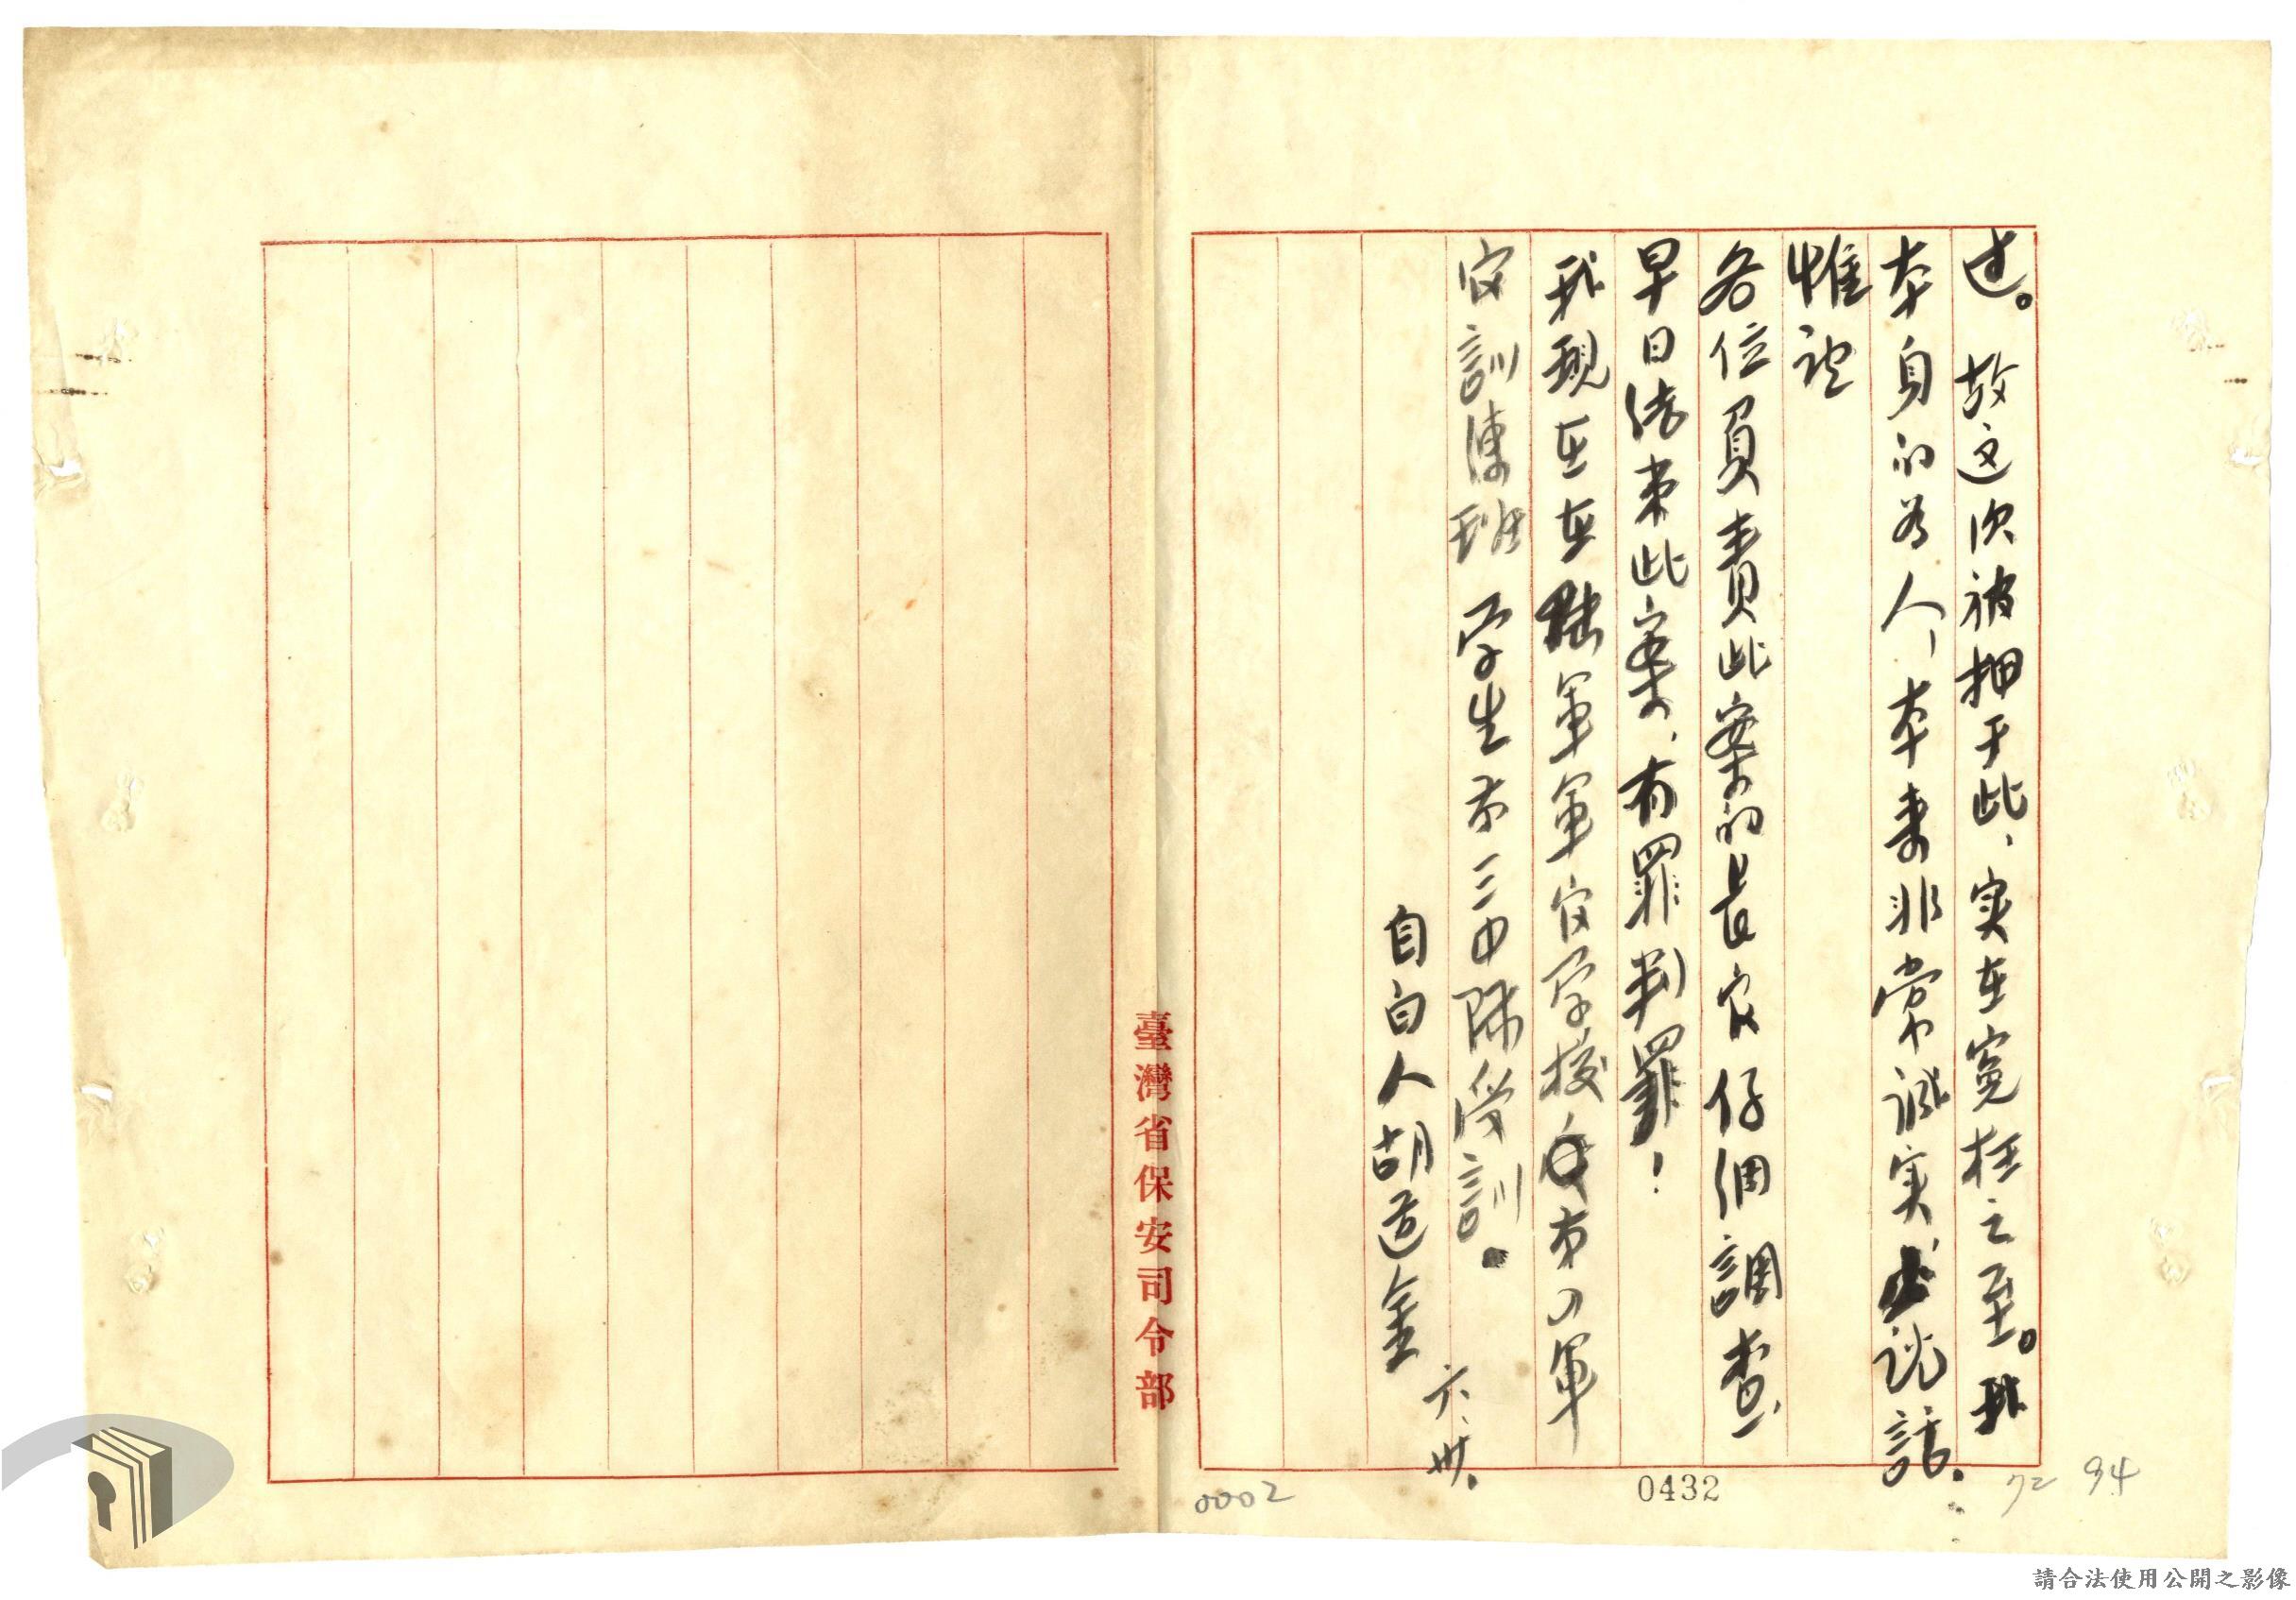 过。故这次被押于此、实在冤枉之至。我
本身的为人、本来非常诚实、说話、
惟望
各位負責此案的長官仔细調查、
早日结束此案、有罪判罪！
我现在在陆軍軍官学校第四軍
官訓練班学生第三中隊受訓。
自白人胡道金
六、卅、
臺灣省保安司令部
0002
0432
72 94
請合法使用公開之影像